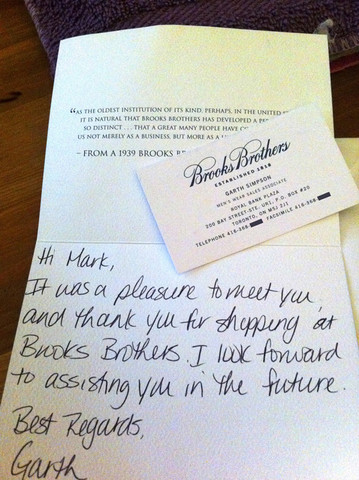 "AS THE OLDEST INSTITUTION OF ITS KIND, PERHAPS, IN THE UNITED
IT IS NATURAL THAT BROOKS BROTHERS HAS DEVELOPED A
SO DISTINCT . . . THAT A GREAT MANY PEOPLE HAVE
US NOT MERELY AS A BUSINESS, BUT MORE AS A
~ FROM A 1939 BROOKS
Brooks Brothers
ESTABLISHED 1818
GARTH SIMPSON
MEN'S WEAR SALES ASSOCIATE
ROYAL BANK PLAZA
200 BAY STREET-STE, UR1, P.O. BOX #20
TORONTO, ON M5J 2J1
TELEPHONE 416-368 FACSIMILE 416-368
Hi Mark,
It was a pleasure to meet you
and thank you for shopping at
Brooks Brothers. I look forward
to assisting you in the future.
Best Regards,
Garth